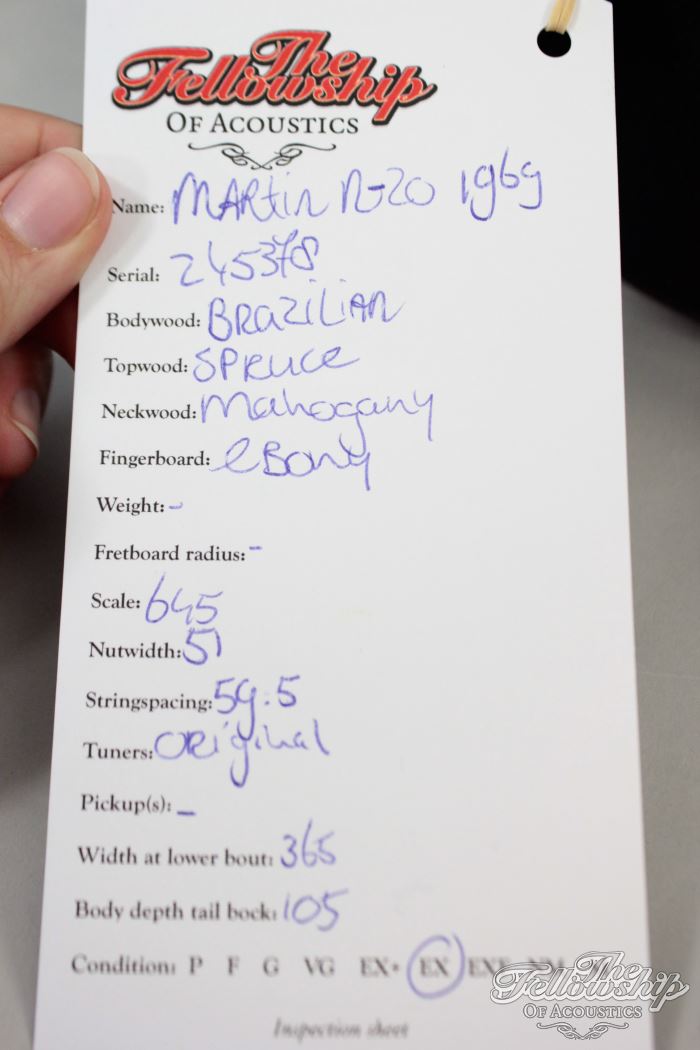 The
Fellowship
OF ACOUSTICS
Name: MARtin N-20 1969
Serial: 245378
Bodywood: BRaZiLiAN
Topwood: SPRuce
Neckwood: Mahogany
Fingerboard: eBony
Weight: -
Fretboard radius: -
Scale: 645
Nutwidth: 51
Stringspacing: 59.5
Tuners: ORiginal
Pickup(s): -
Width at lower bout: 365
Body depth tail bock: 105
Condition: P F G VG EX- EX
Inspection sheet
The
Fellowship
OF ACOUSTICS